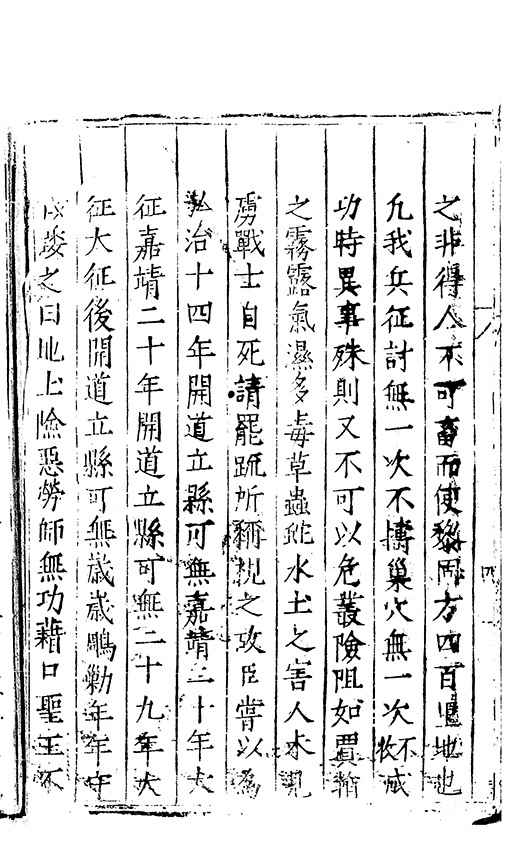 之非得人不可畜而使黎而方四百里地也
九我兵征討無一次不搏巢穴無一次不收成
功時異事殊則又不可以危叢險阻如賈
之霧露氣濕多毒草蟲蛇水土之害人未見
虜戰士自死請罷疏所稱視之攻臣嘗以為
弘治十四年開道立縣可無嘉靖二十年大
征嘉靖二十年開道立縣可無二十九年大
征大征後開道立縣可無歲歲鵰勦年年守
之曰地土險惡勞師無功藉口聖王不